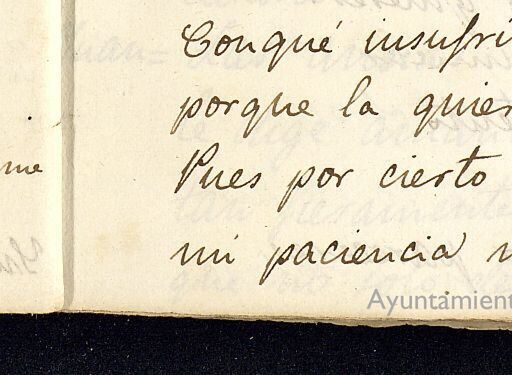 Conqué insufri
porque la quier
me
Pues por cierto
mi paciencia
Ayuntamient